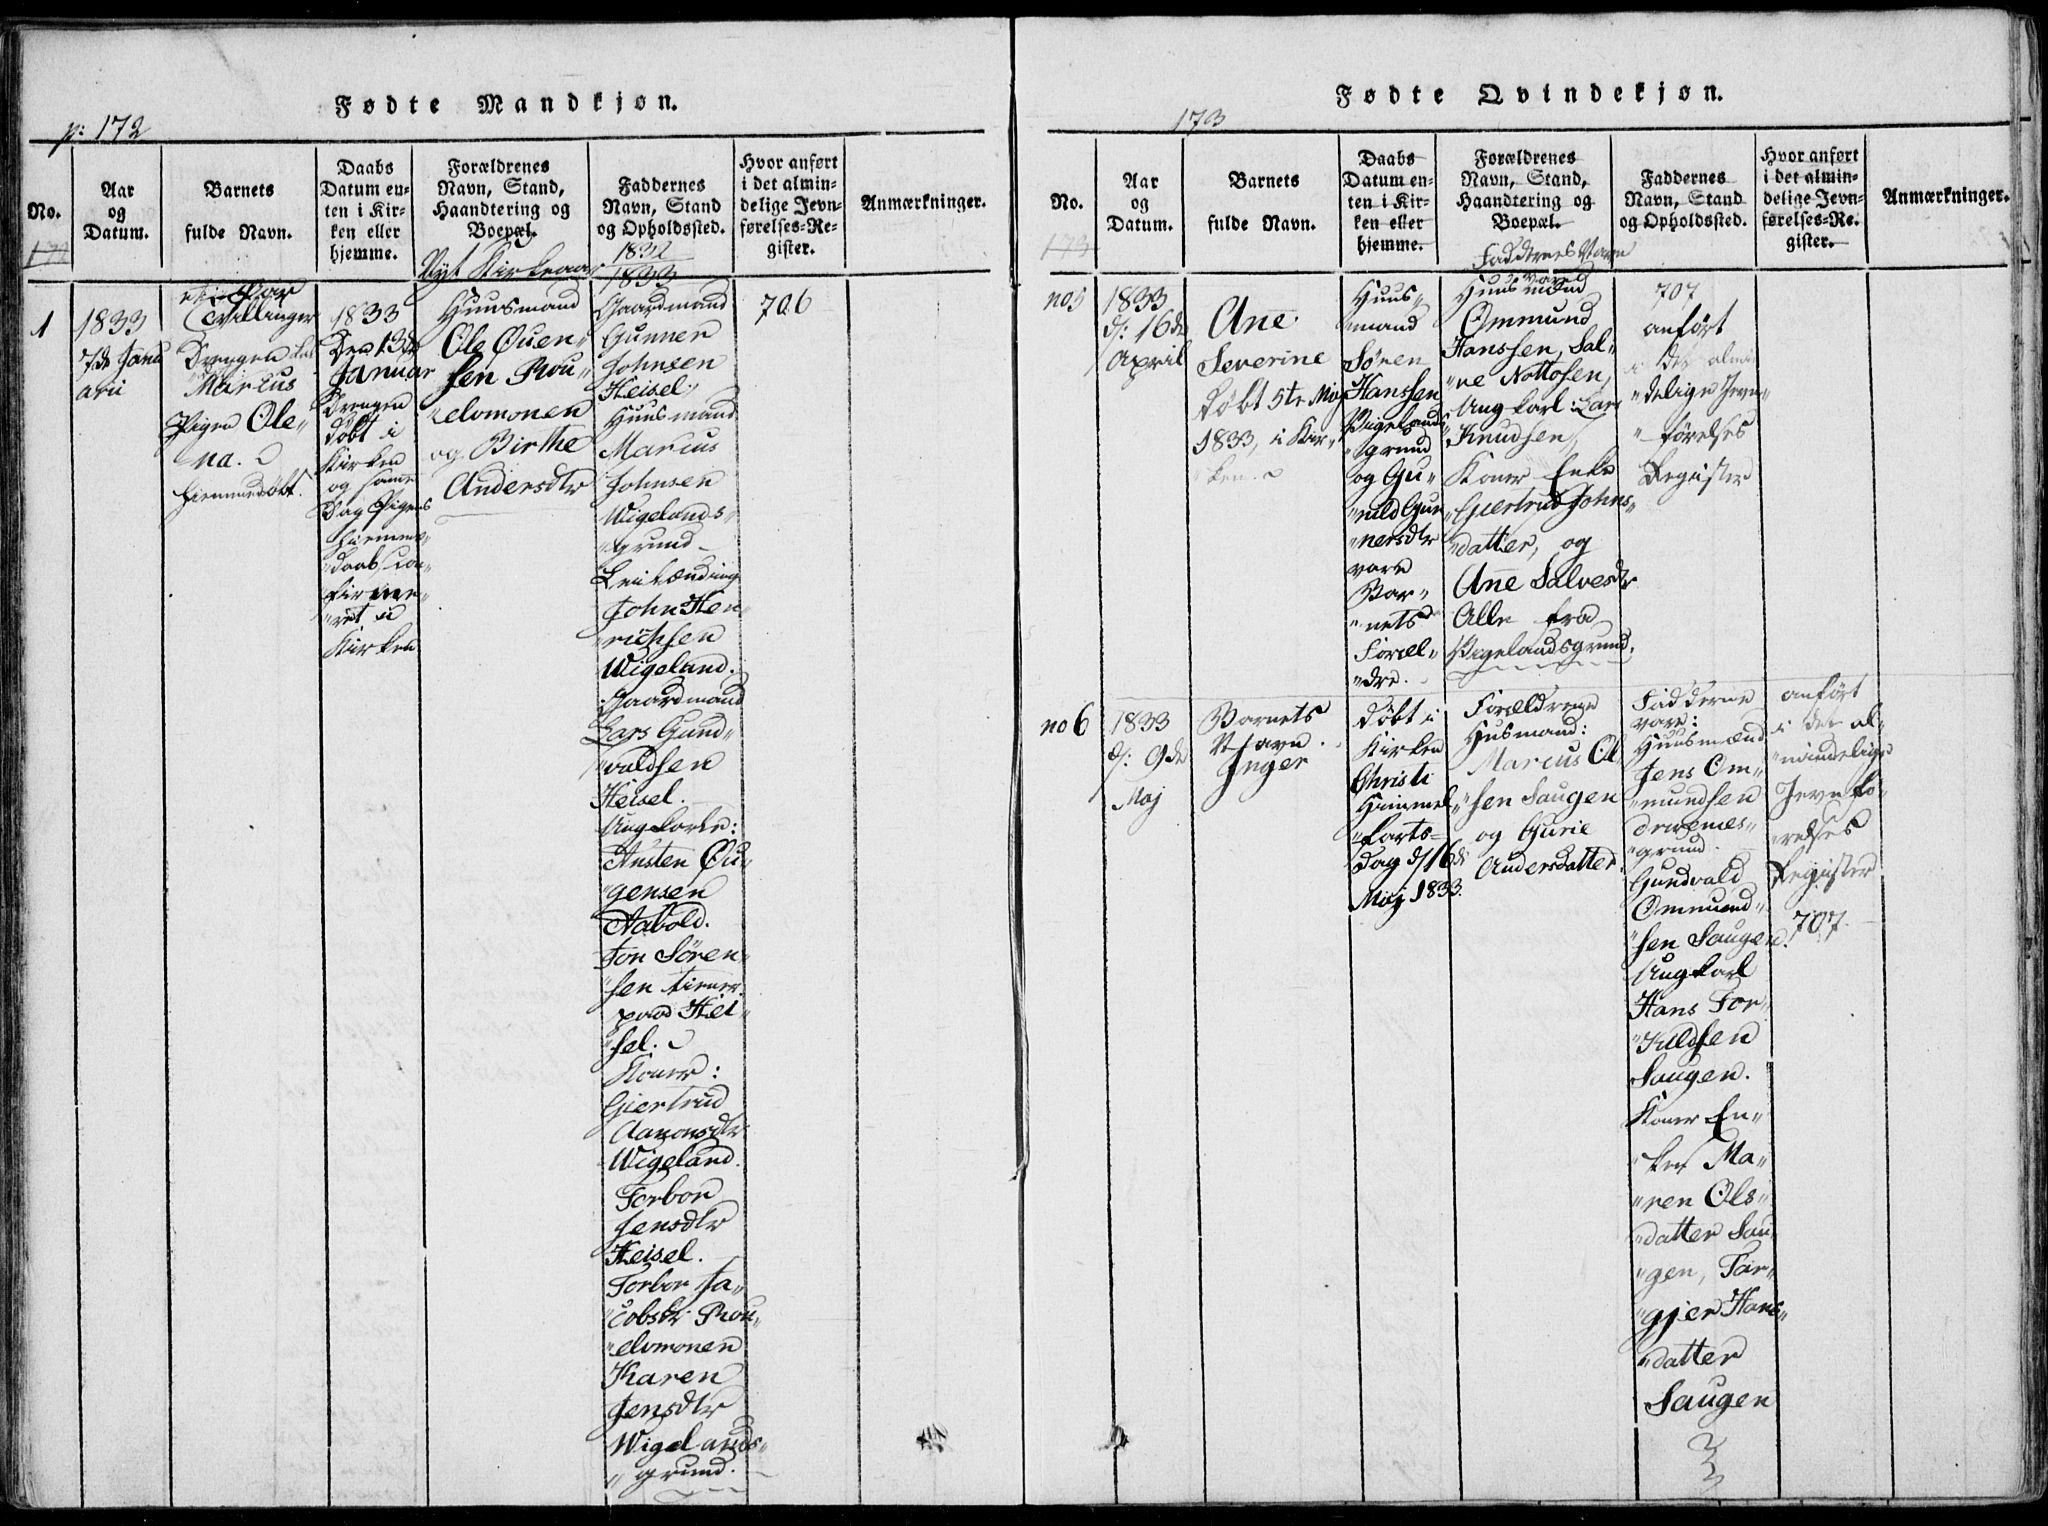 Fødte Mandkjøn.
p: 172
No.
Aar
og
Datum.
Barnets
fulde Navn.
Daabs
Datum en-
ten i Kir-
ken eller
hjemme.
Forældrenes
Navn, Stand,
Haandtering og
Boepæl.
Faddernes
Navn, Stand
og Opholdssted.
Hvor anført
i det almin-
delige Jevn-
førelses-Re-
gister.
Anmærkninger.
Nyt Kirkeaar
1832
1833
1
1833
7de Janu
arii
et Par
Tvillinger
Drengen
Marcus
Pigen Ole„
na.
hiemmedøbt.
1833
Den 13de
Januar
Drengen
døbt i
Kirken
og samme
Dag Pigens
hiemme„
„daab con„
firme„
„ret i
Kirken
Huusmand
Ole Ouen„
sen Rou„
„elvmonen
og Birthe
Andersdtr
Gaardmand
Gunner
Johnsen
Heisel,
Huusmand
Marcus
Johnsen
Wigelands„
„grund
Leilænding
John Hen„
„richsen
Wigeland.
Gaardmand
Lars Gund„
„valdsen
Heisel.
Ungkarle:
Austen Ou„
gensen
Aabold.
Jon Søren„
„sen tiener
paa Hei„
„sel.
Koner:
Giertrud
Aanonsdtr
Wigeland.
Torbor
Jensdtr
Heisel.
Torbor Ja„
„cobsdtr Rou„
„elvmonen
Karen
Jensdtr
Wigelands„
„grund.
706
Fødte Qvindekjøn.
173
No.
173
Aar
og
Datum.
Barnets
fulde Navn.
Daabs
Datum en-
ten i Kir-
ken eller
hjemme.
Forældrenes
Navn, Stand,
Haandtering og
Boepæl.
Faddernes
Navn, Stand
og Opholdssted.
Hvor anført
i det almin-
delige Jevn-
førelses-Re-
gister.
Anmærkninger.
Faddernes Navn
vare
no 5
1833
d: 16de
April
Ane
Severine
Døbt 5te Maj
1833, i Kir„
„ken.
Huus„
„mand
Søren
Hanssen
Vigelands
„grund
og Gu„
„nild Gun„
„nersdtr
vare
Bar„
„nets
Foræl„
„dre.
Huusmænd
Ommund
Hanssen, Sal„
„ve Nottosen,
Ungkarl Lars
Knudsen,
Koner Enke
Giertrud Johns„
„datter, og
Ane Salvesdtr
Alle fra
Vigelandsgrund.
707
anført
i det almin
„delige Jevn„
„førelses
Register
no 6
1833
d: 9de
Maj
Barnets
Navn
Inger
Døbt i
Kirken
Christi
Himmel„
„farts=
Dag d: 16de
Maj 1833.
Forældrene
Husmand:
Marcus Ol
„sen Saugen
og Gurie
Andersdatter
Fadderne
vare:
Huusmænd
Jens Om„
„mundsen
Drivenes„
„grund.
Gundvald
Ommund„
„sen Saugen.
Ungkarl
Hans Tor„
„kildsen
Saugen.
Koner En„
„ken Ma„
„ren Ols„
„datter Sau„
„gen, Tar„
„gjer Hans„
„datter
Saugen
anført
i det al„
„mindelige
Jevnfø„
„relses
Register
707